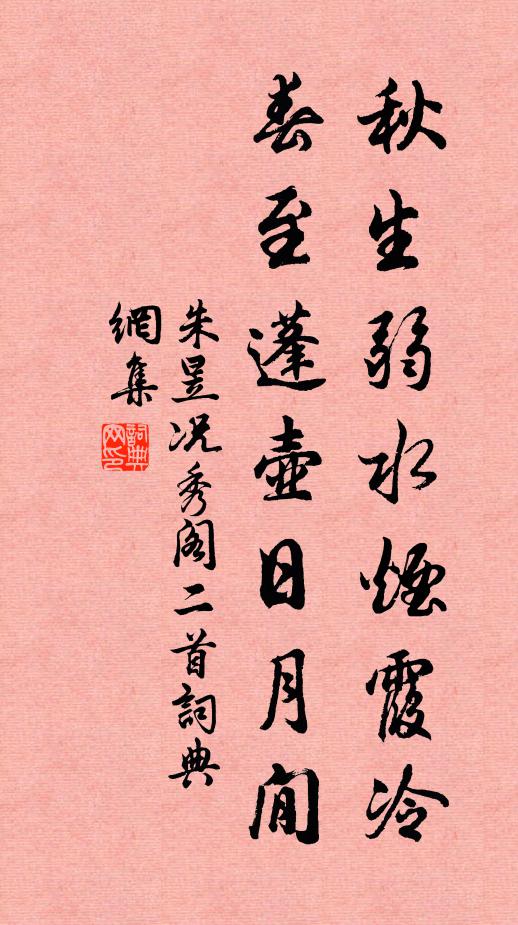 秋生弱水煙霞冷
春至蓬壺日月閒
朱昱況秀阁二首詞典
網集
詞典網印